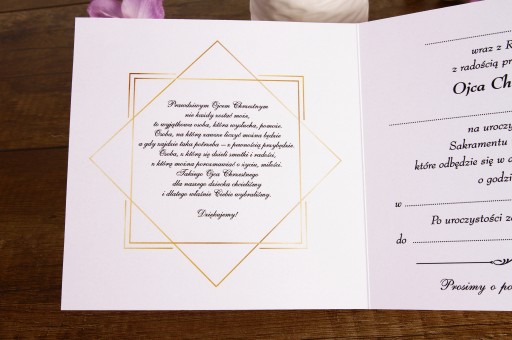 Prawdziwym Ojcem Chrzestnym
nie każdy zostać może,
to wyjątkowa osoba, która wysłucha, pomoże.
Osoba, na którą zawsze liczyć można będzie
a gdy zajdzie taka potrzeba – z pewnością przybędzie.
Osoba, z którą się dzieli smutki i radości,
z którą można porozmawiać o życiu, miłości.
Takiego Ojca Chrzestnego
dla naszego dziecka chcieliśmy
i dlatego właśnie Ciebie wybraliśmy.
Dziękujemy!
wraz z R
z radością pr
Ojca Ch
na uroczy
Sakramentu
które odbędzie się w d
o godzi
w
Po uroczystości z
do
Prosimy o po